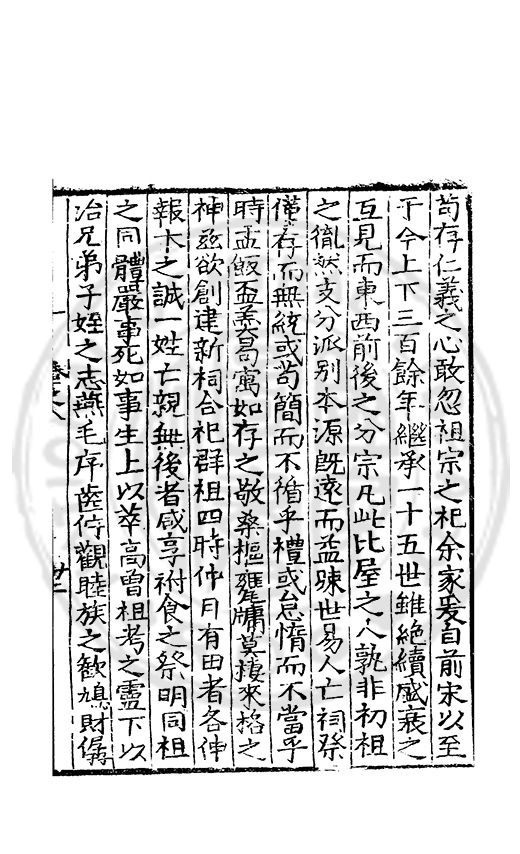 苟存仁義之心敢忽祖宗之祀余家爰自前宋以至
于今上下三百餘年繼承一十五世雖絶續盛衰之
互見而東西前後之分宗凡此比屋之人孰非初祖
之胤然支分派别本源既遠而益踈世易人亡祠祭
僅存而無統或苟簡而不循乎禮或怠惰而不當乎
時盂飯盃羹曷寓如存之敬桑樞甕牖莫棲來格之
神兹欲創建新祠合祀群祖四時仲月有田者各伸
報本之誠一姓亡親無後者咸享祔食之祭明同祖
之同體嚴事死如事生上以萃高曾祖考之靈下以
洽兄弟子姪之志燕毛序齒佇觀睦族之歡鳩財僝
卷之八